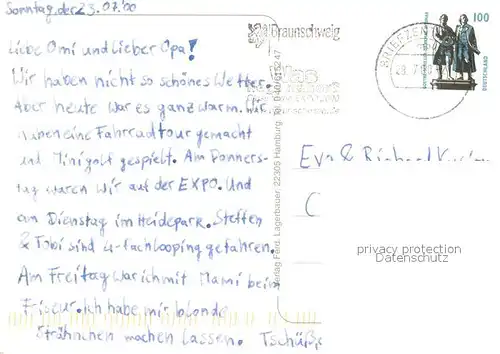 Sonntag, der 23.07.00
Liebe Omi und lieber Opa!
Wir haben nicht so schönes Wetter.
Aber heute war es ganz warm. Wir
haben eine Fahrradtour gemacht
und Minigolf gespielt. Am Donners-
tag waren wir auf der EXPO. Und
am Dienstag im Heidepark. Steffen
& Tobi sind 4-fachlooping gefahren.
Am Freitag war ich mit Mami beim
Friseur. Ich habe mir blonde
Strähnchen machen lassen. Tschüß
Braunschweig
Verlag Ferd. Lagerbauer, 22305 Hamburg, Tel. 040/615247
BRIEFZEN
100
DEUTSCHLAND
Eva & Richard
privacy protection
Datenschutz